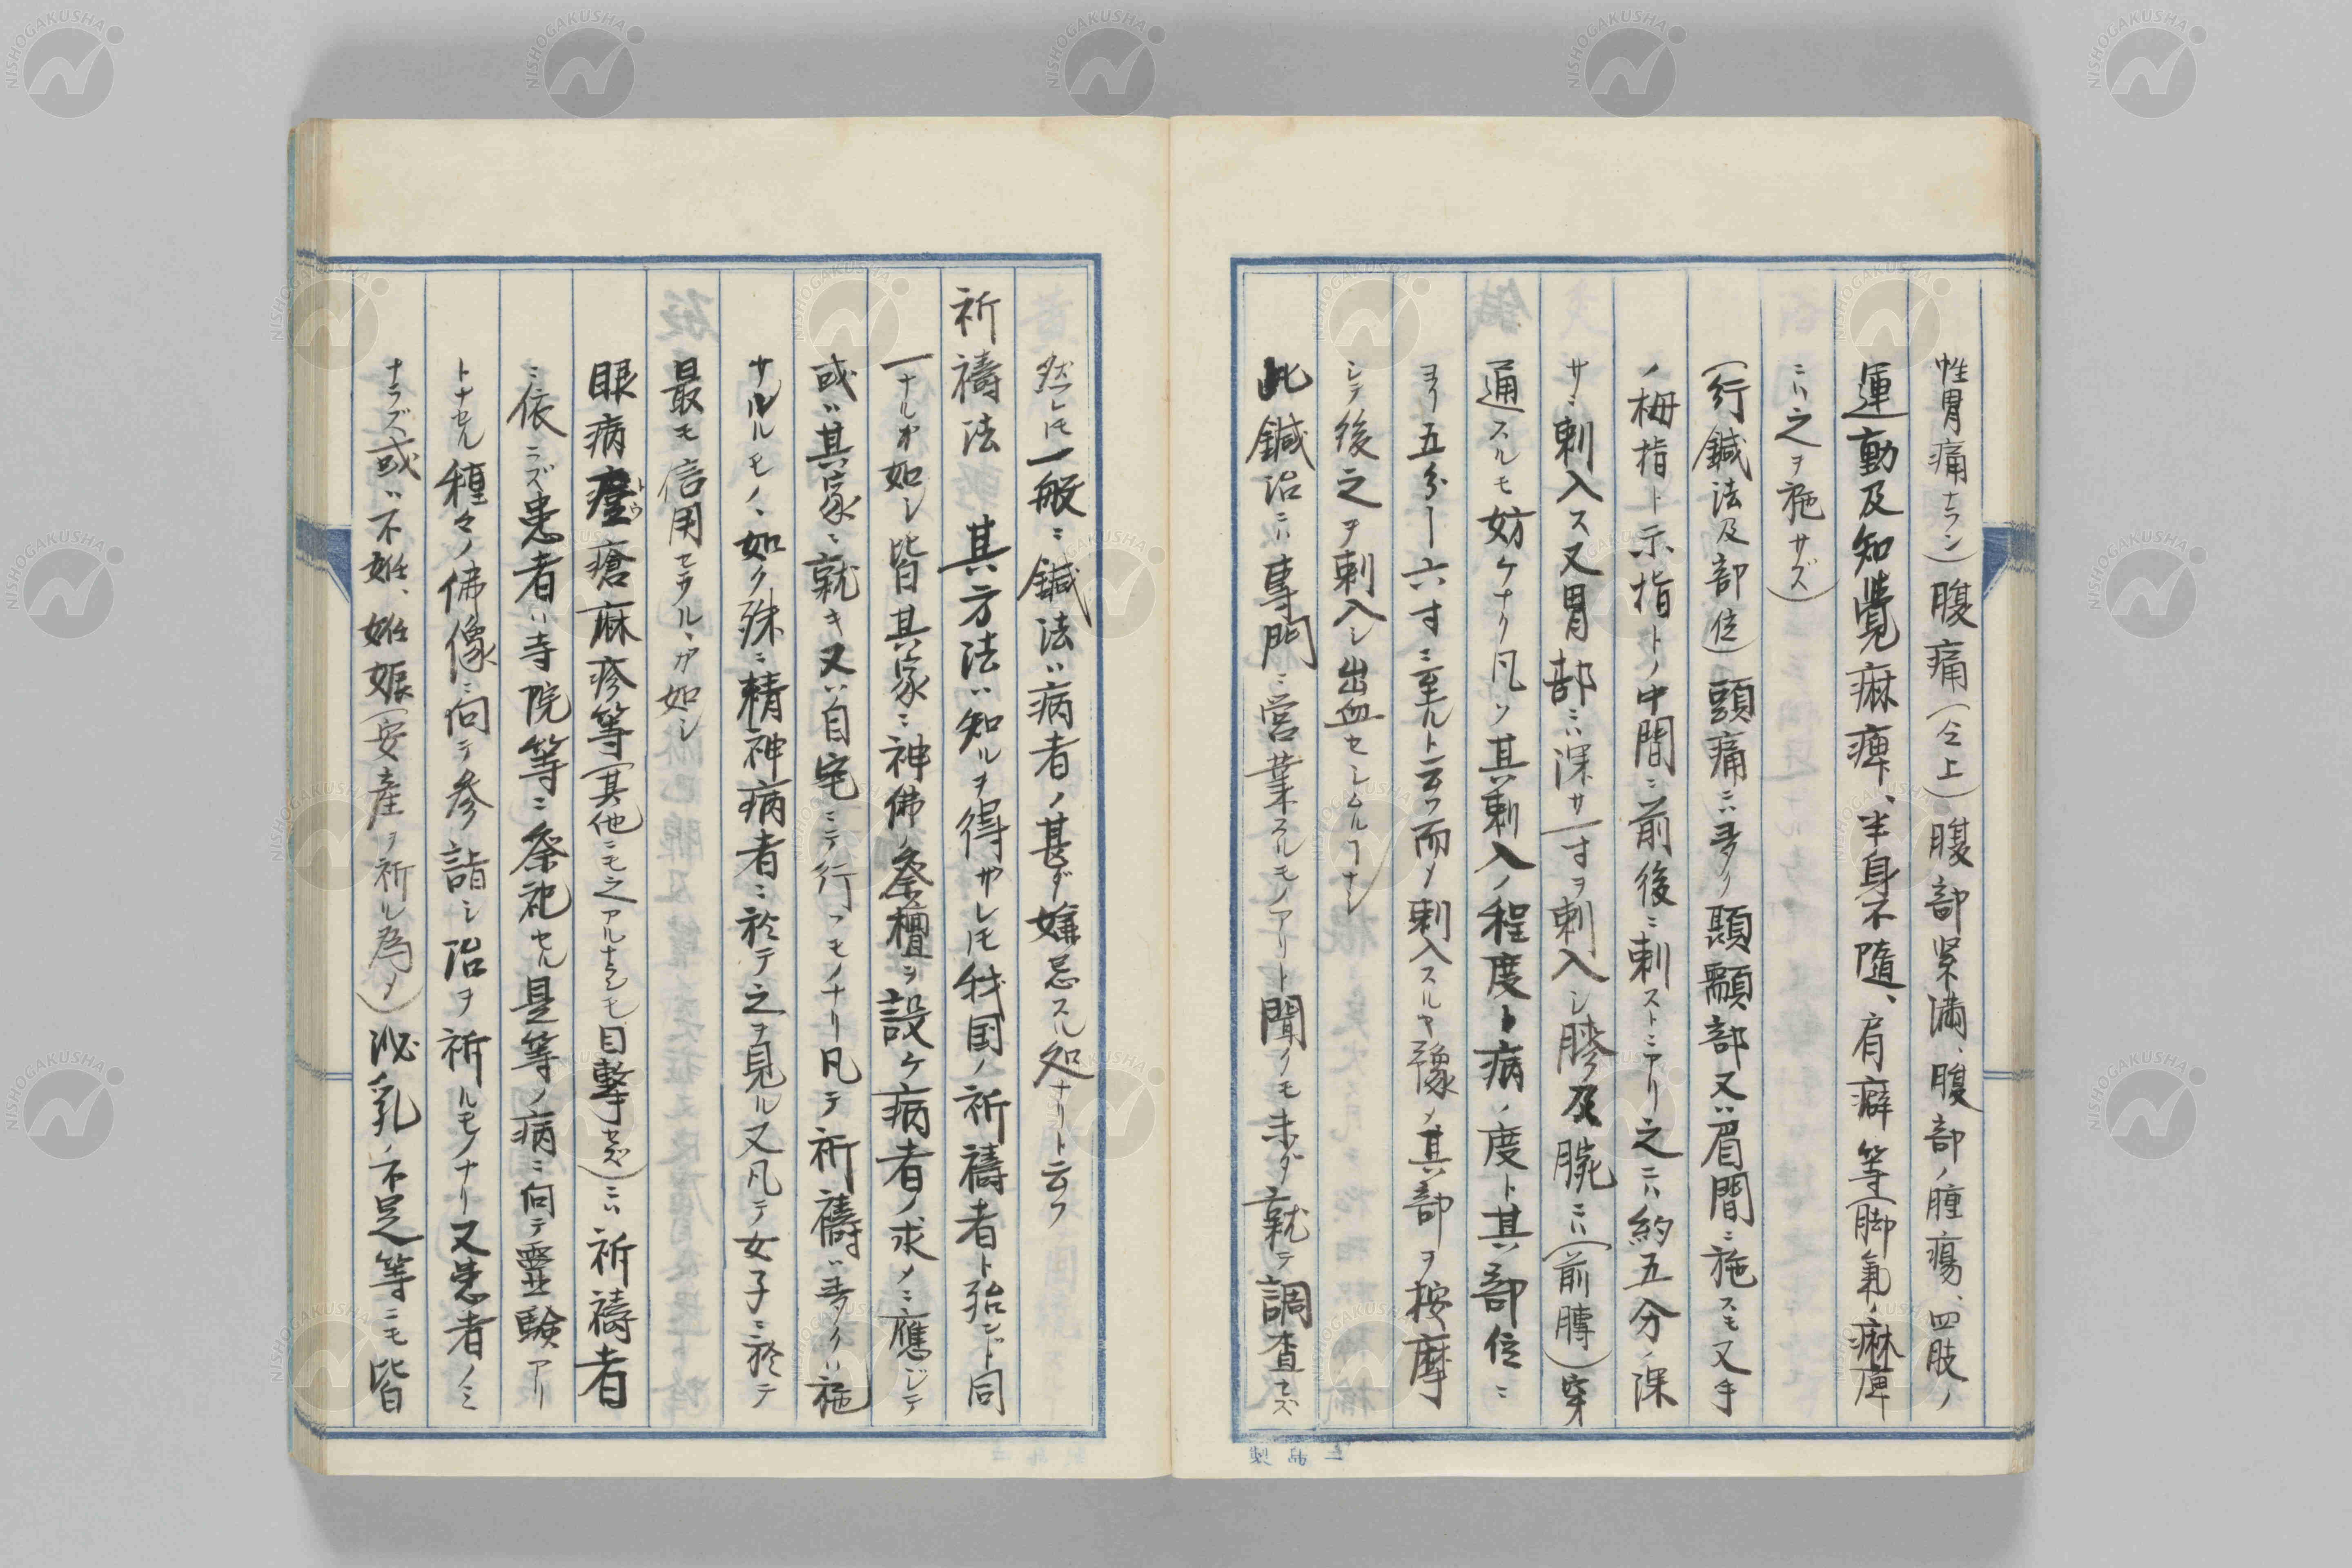 性胃痛ナラン)腹痛(仝上)腹部緊満、腹部ノ腫瘍、四肢ノ
運動及知覚麻痺、半身不随、肩癖等(脚氣ノ麻痺
ニハ之ヲ施サズ)
(行鍼法及部位)頭痛ニハ多クハ顳顬部又ハ眉間ニ施スモ又手
ノ拇指ト示指トノ中間ニ前後ニ刺ストニアリ之ニハ約五分ノ深
サニ刺入ス又胃部ニハ深サ一寸ヲ刺入シ膝及腕ニハ(前膊)穿
通スルモ妨ケナク凡ソ其刺入ノ程度ト病ノ度ト其部位ニ
ヨリ五分ー六寸ニ至ルト云フ而メ刺入スルヤ豫メ其部ヲ按摩
シテ後之ヲ刺入シ出血セシムルヿナシ
此鍼治ニハ専門ニ営業スルモノアリト聞クモ未ダ就テ調査セズ
然レ𪜈一般ニ鍼法ハ病者ノ甚ダ嫌忌スル処ナリト云フ
祈禱法 其方法ハ知ルヲ得ザレ𪜈我国ノ祈禱者ト殆ンド同
一ナルガ如シ皆其家ニ神佛ノ祭檀ヲ設ケ病者ノ求メニ應ジテ
或ハ其家ニ就キ又ハ自宅ニテ行フモノナリ凡テ祈禱ハ多クハ施
サルルモノヽ如ク殊ニ精神病者ニ於テ之ヲ見ル又凡テ女子ニ於テ
最モ信用セラルヽガ如シ
眼病痘瘡麻疹等(其他ニモ之アルナランモ目撃セズ)ニハ祈禱者
ニ依ラズ患者ハ寺院等ニ祭祀セル是等ノ病ニ向テ霊験アリ
トナセル種々ノ佛像ニ向テ参詣シ治ヲ祈ルモノナリ又患者ノミ
ナラズ或ハ不妊、妊娠(安産ヲ祈ル為メ)泌乳ノ不足等ニモ皆